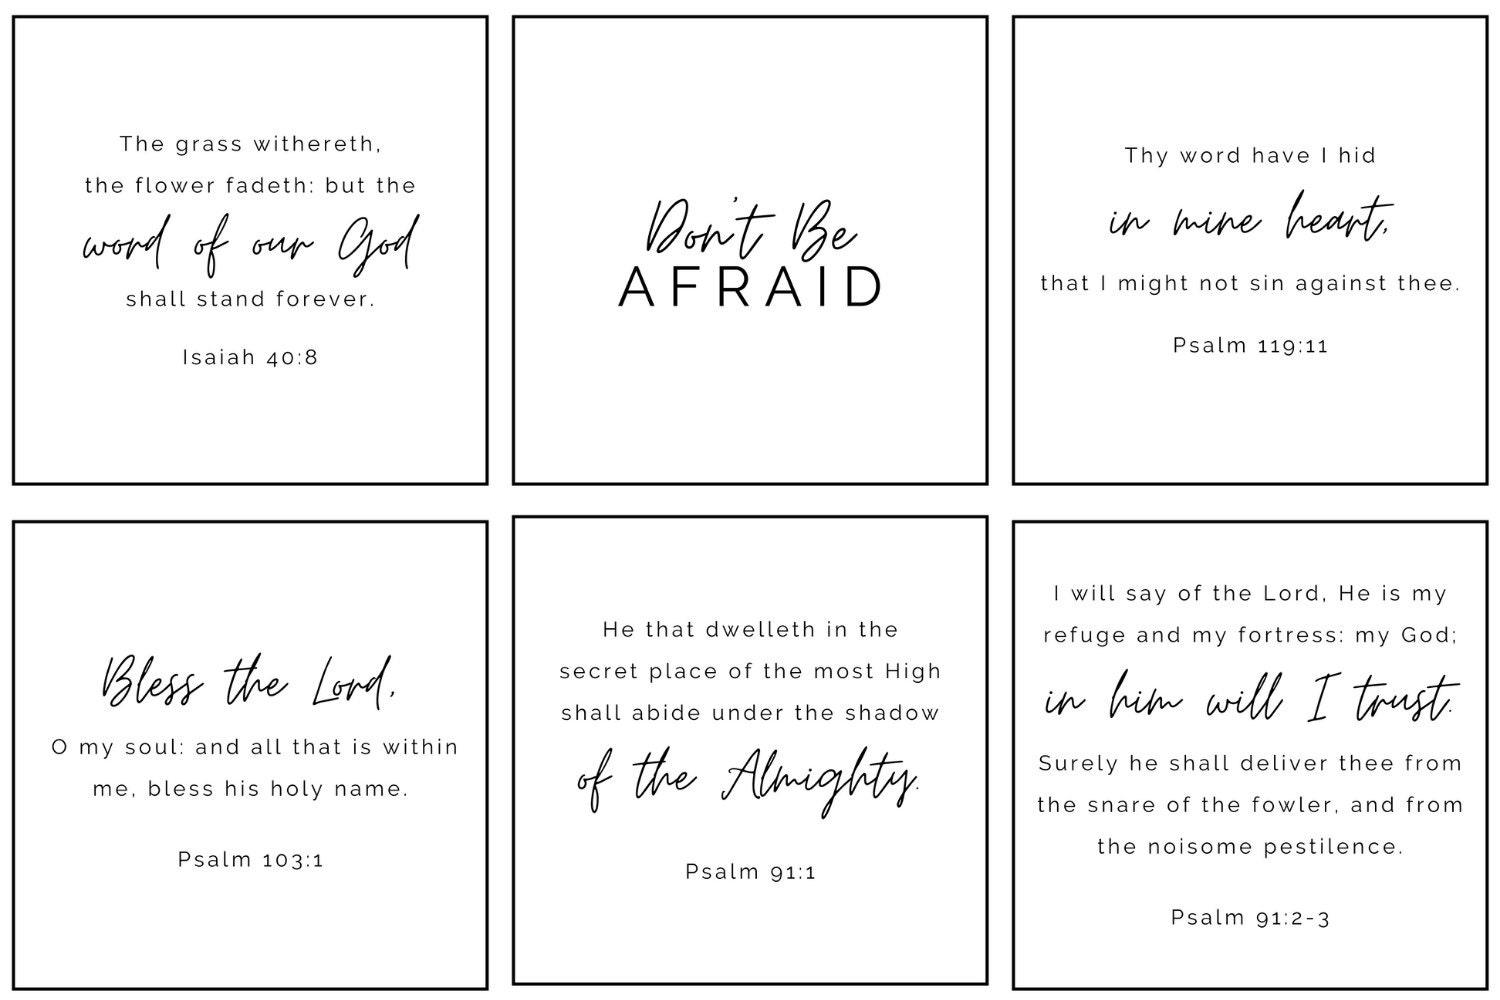 The grass withereth,
the flower fadeth: but the
word of our God
shall stand forever.
Isaiah 40:8
Don't Be
AFRAID
Thy word have I hid
in mine heart,
that I might not sin against thee.
Psalm 119:11
Bless the Lord,
O my soul: and all that is within
me, bless his holy name.
Psalm 103:1
He that dwelleth in the
secret place of the most High
shall abide under the shadow
of the Almighty.
Psalm 91:1
I will say of the Lord, He is my
refuge and my fortress: my God;
in him will I trust.
Surely he shall deliver thee from
the snare of the fowler, and from
the noisome pestilence.
Psalm 91:2-3